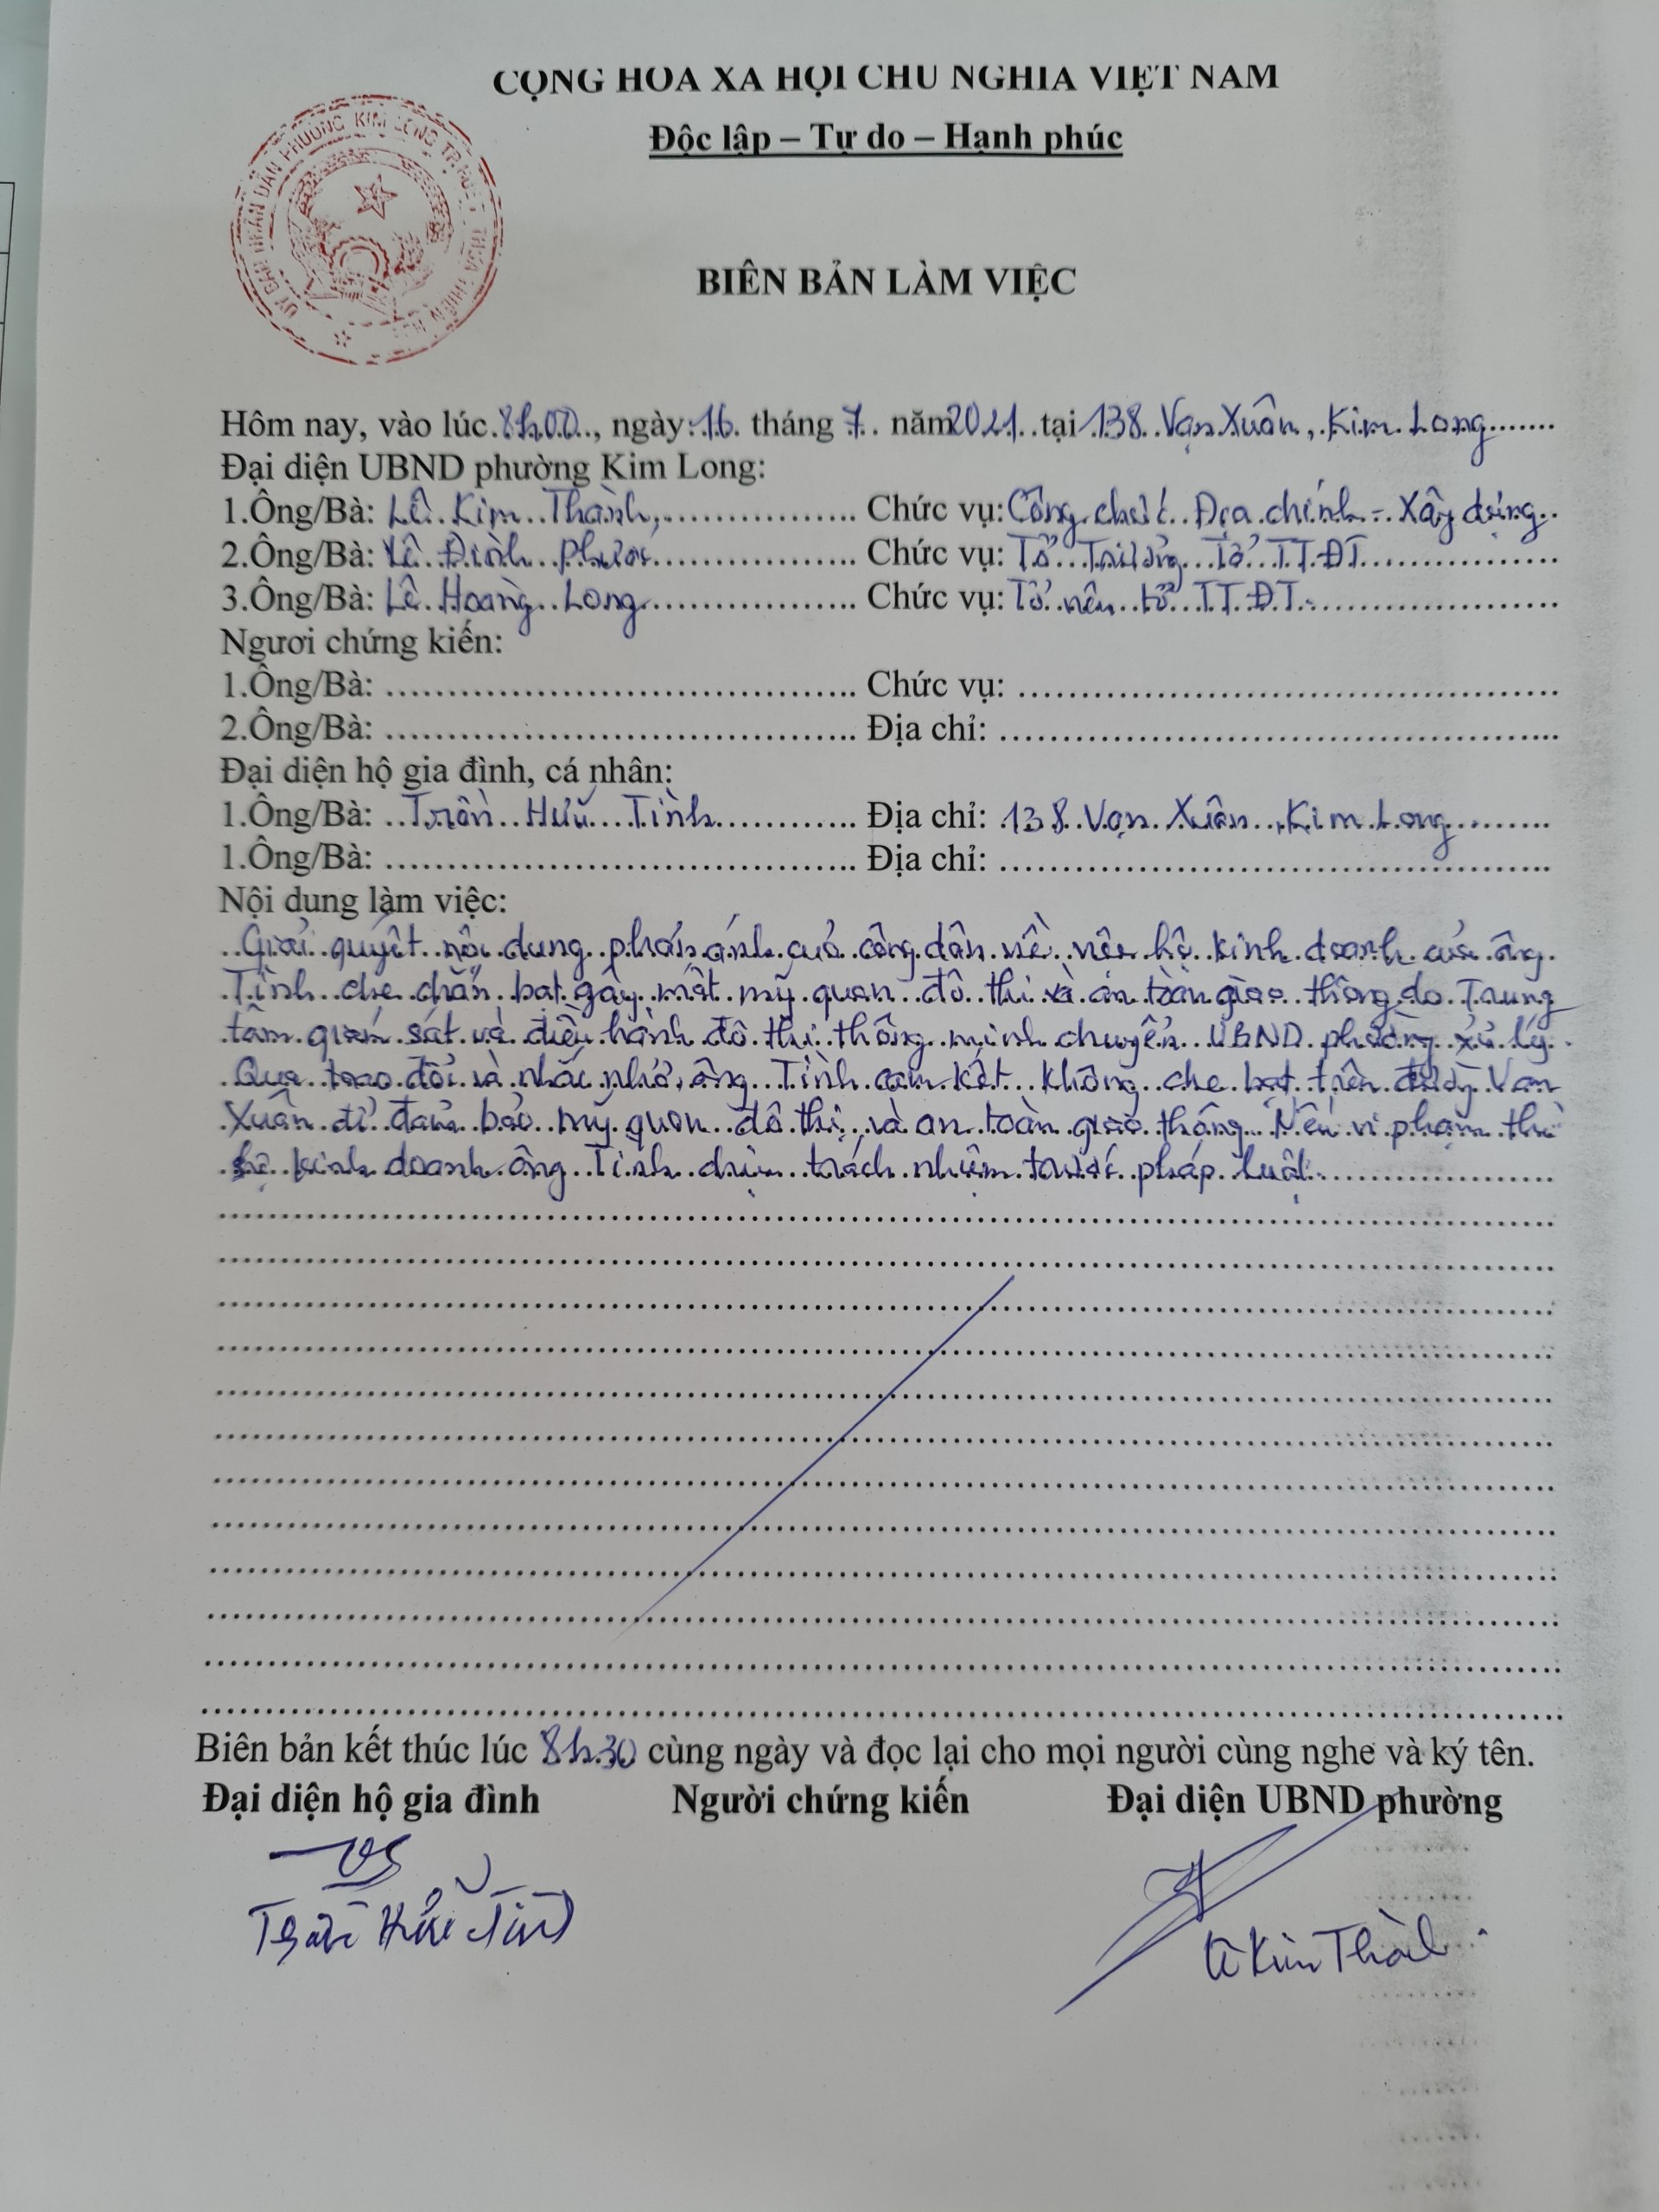 CỘNG HÒA XÃ HỘI CHỦ NGHĨA VIỆT NAM
Độc lập – Tự do – Hạnh phúc
ỦY BAN NHÂN DÂN PHƯỜNG KIM LONG TP. HUẾ T. THỪA THIÊN HUẾ
BIÊN BẢN LÀM VIỆC
Hôm nay, vào lúc 8h00, ngày 16 tháng 7 năm 2021 tại 138 Vạn Xuân, Kim Long
Đại diện UBND phường Kim Long:
1.Ông/Bà: Lê Kim Thành, Chức vụ: Công chức Địa chính - Xây dựng
2.Ông/Bà: Lê Đình Phước Chức vụ: Tổ Trưởng Tổ TTĐT
3.Ông/Bà: Lê Hoàng Long Chức vụ: Tổ viên tổ TTĐT
Ngươi chứng kiến:
1.Ông/Bà: Chức vụ:
2.Ông/Bà: Địa chỉ:
Đại diện hộ gia đình, cá nhân:
1.Ông/Bà: Trần Hữu Tình Địa chỉ: 138 Vạn Xuân, Kim Long
1.Ông/Bà: Địa chỉ:
Nội dung làm việc:
Giải quyết nội dung phản ánh của công dân về việc hộ kinh doanh của ông
Tình che chắn bạt gây mất mỹ quan đô thị và an toàn giao thông do Trung
tâm giám sát và điều hành đô thị thông minh chuyển UBND phường xử lý.
Qua trao đổi và nhắc nhở, ông Tình cam kết không che bạt trên đường Vạn
Xuân để đảm bảo mỹ quan đô thị và an toàn giao thông. Nếu vi phạm thì
hộ kinh doanh ông Tình chịu trách nhiệm trước pháp luật.
Biên bản kết thúc lúc 8h30 cùng ngày và đọc lại cho mọi người cùng nghe và ký tên.
Đại diện hộ gia đình Người chứng kiến Đại diện UBND phường
Trần Hữu Tình Lê Kim Thành